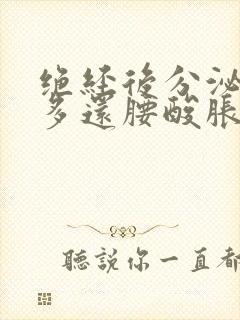 绝经後分泌
多還腰酸脹
聽説你一直都